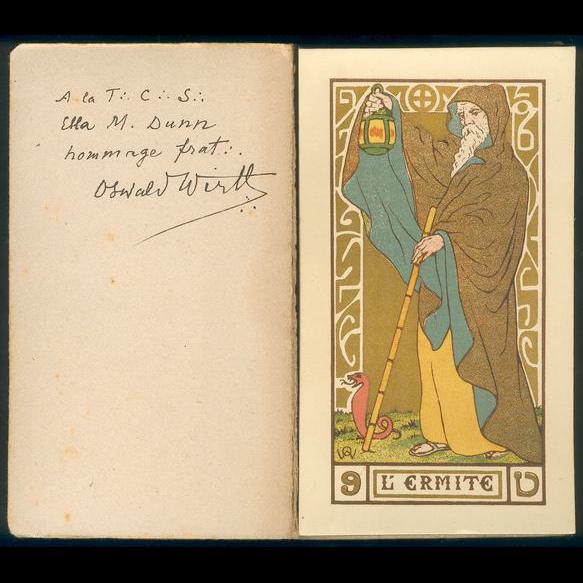 A la T∴ C∴ S∴
Ella M. Dunn
hommage frat∴
Oswald Wirth
9 L'ERMITE ט